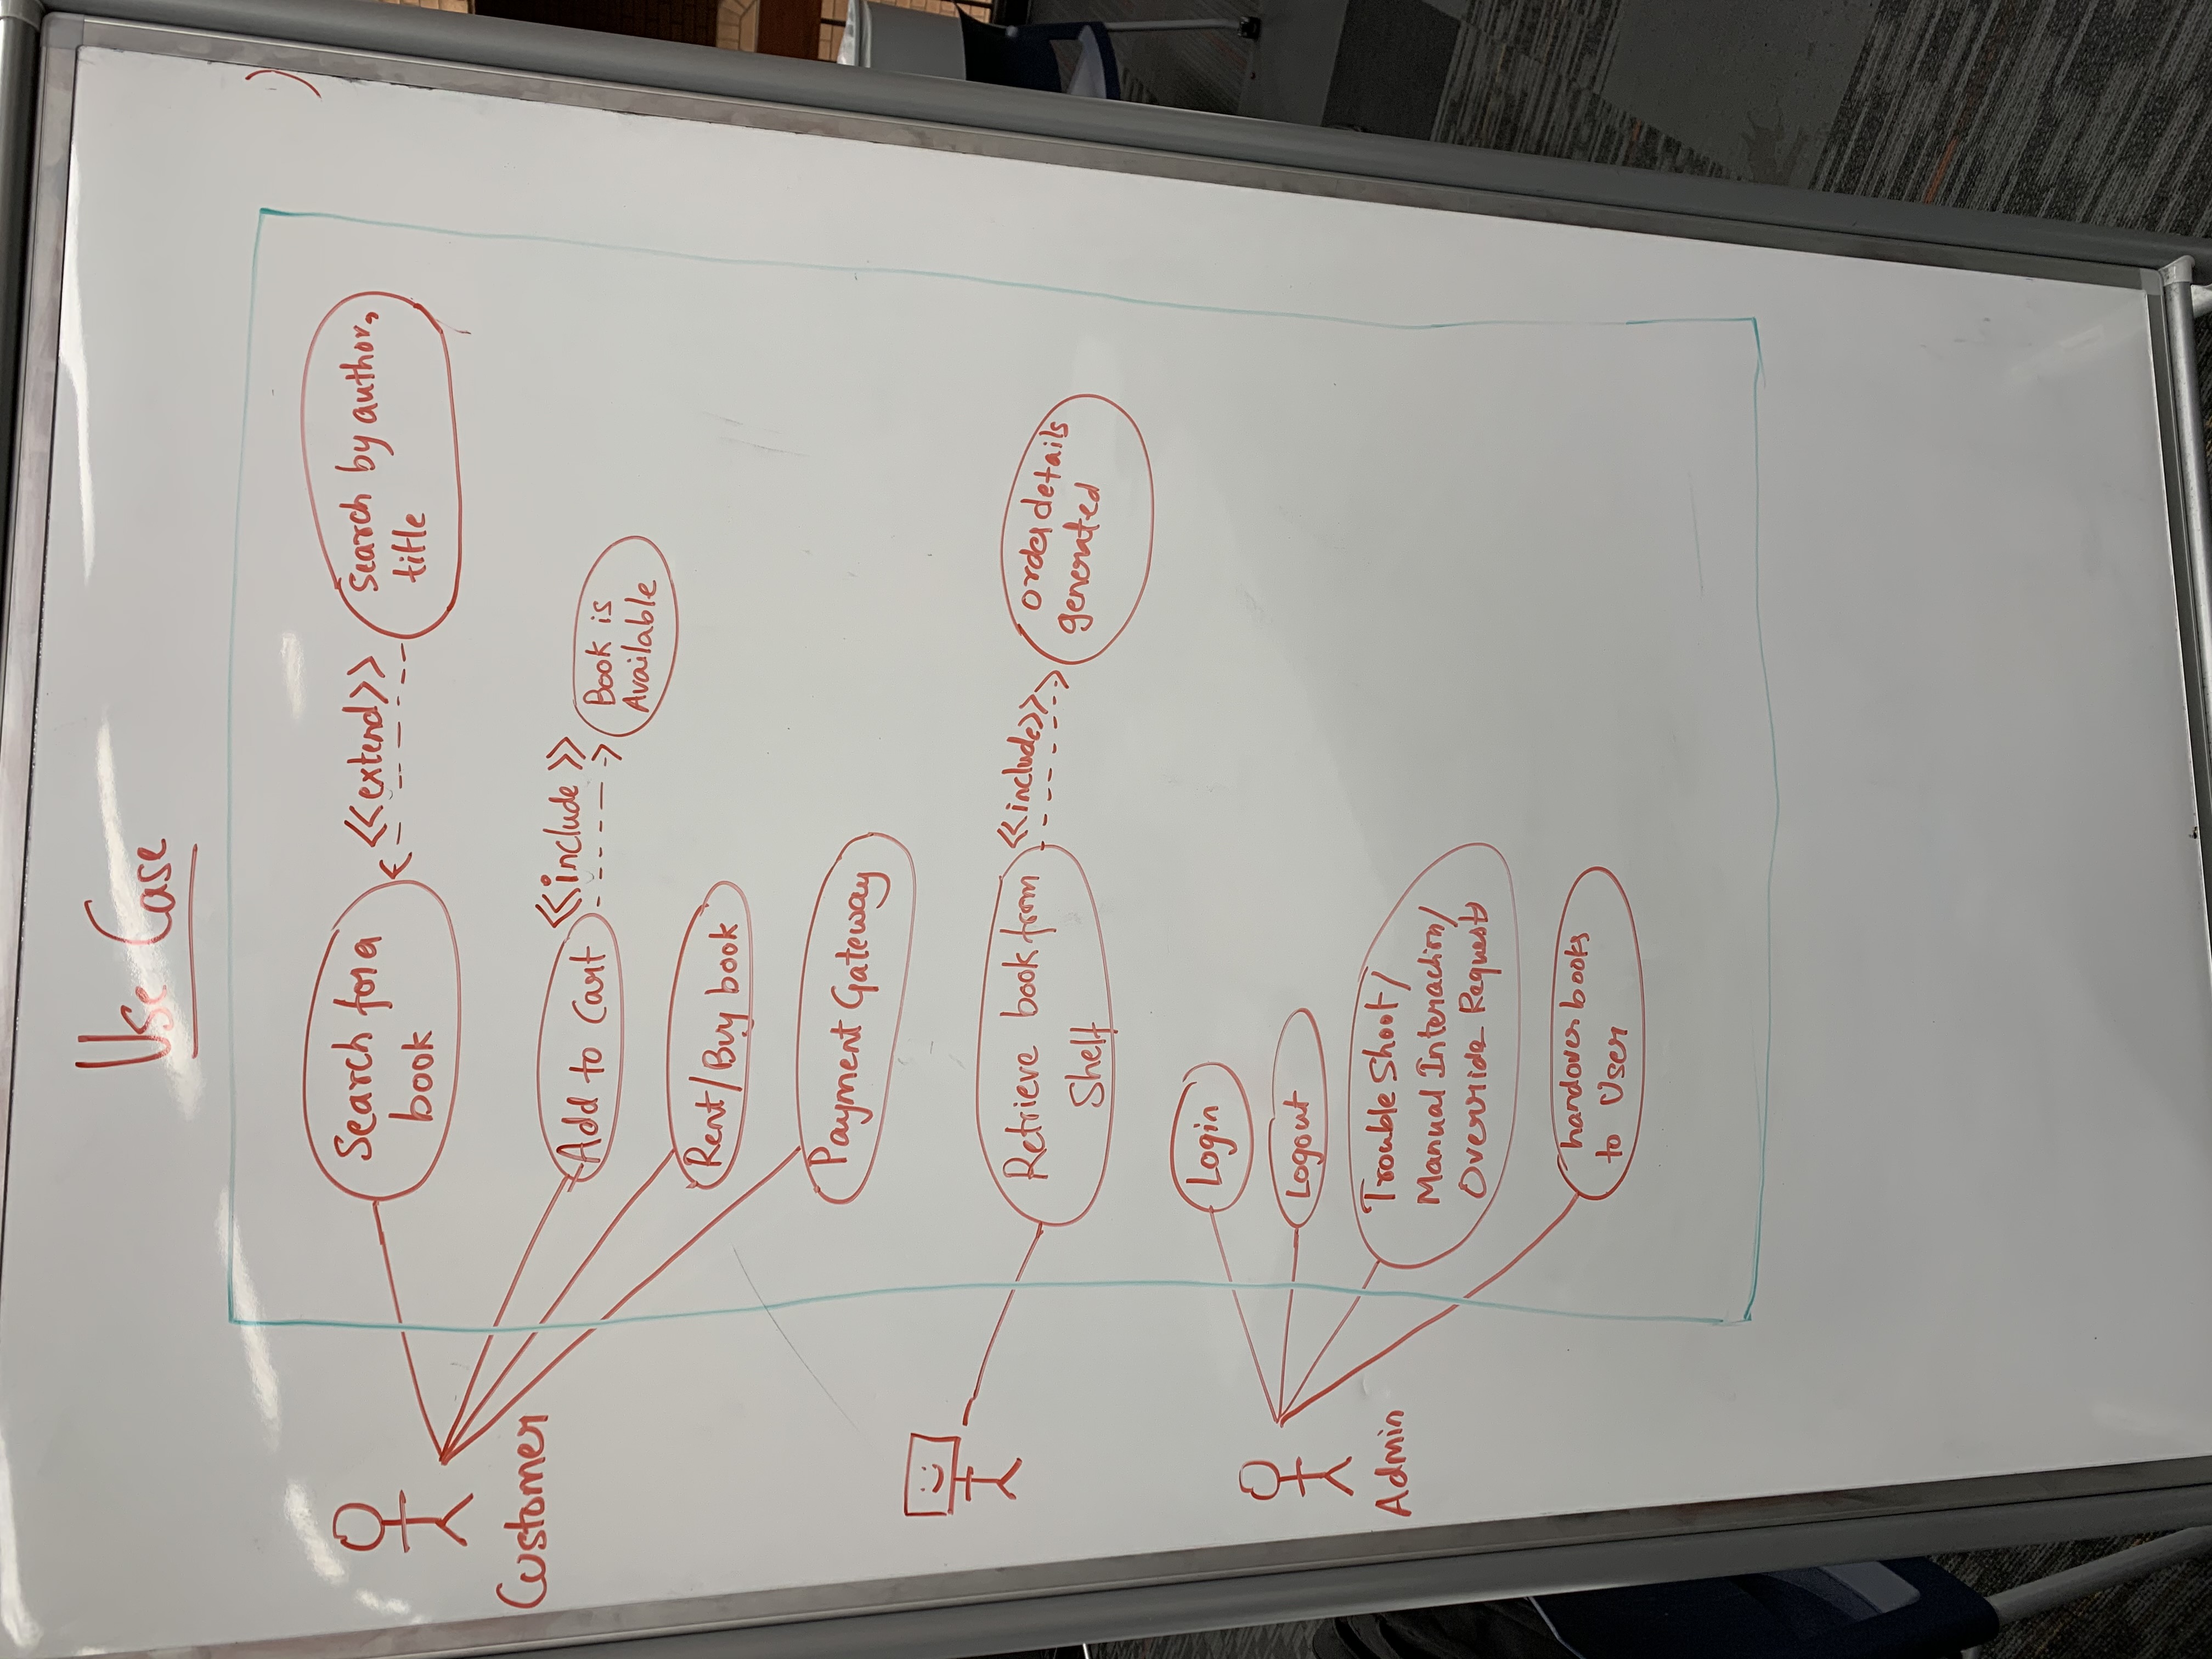 Use Case
Search for a
book
<<extend>>
Search by author,
title
Customer
Add to Cart
<<include>>
Book is
Available
Rent/Buy book
Payment Gateway
Retrieve book from
Shelf
<<include>>
order details
generated
Login
Logout
Admin
Trouble Shoot/
Manual Interaction/
Override Requests
handover books
to User